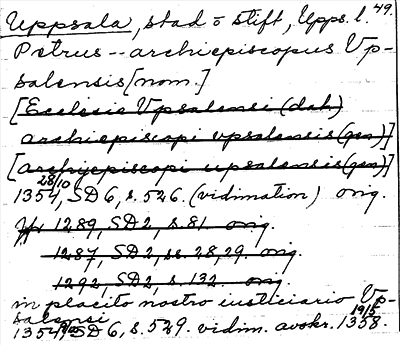 Uppsala, stad o stift, Upps. l. 49.
Petrus -- archiepiscopus Vp-
salensis [nom.]
[Ecclesie Vpsalensi (dat)
archiepiscopi vpsalensis (gen)]
[archyepiscopi upsalensis (gen)]
28/10
1354, SD 6, s. 526. (vidimation) orig.
1289, SD2, s. 81. orig.
1287, SD2, ss. 28, 29. orig.
1292, SD2, s. 132. orig.
in placito nostro iusticiario Vp-
salensi 19/5
1354, SD 6, s. 529. vidim. avskr. 1358.